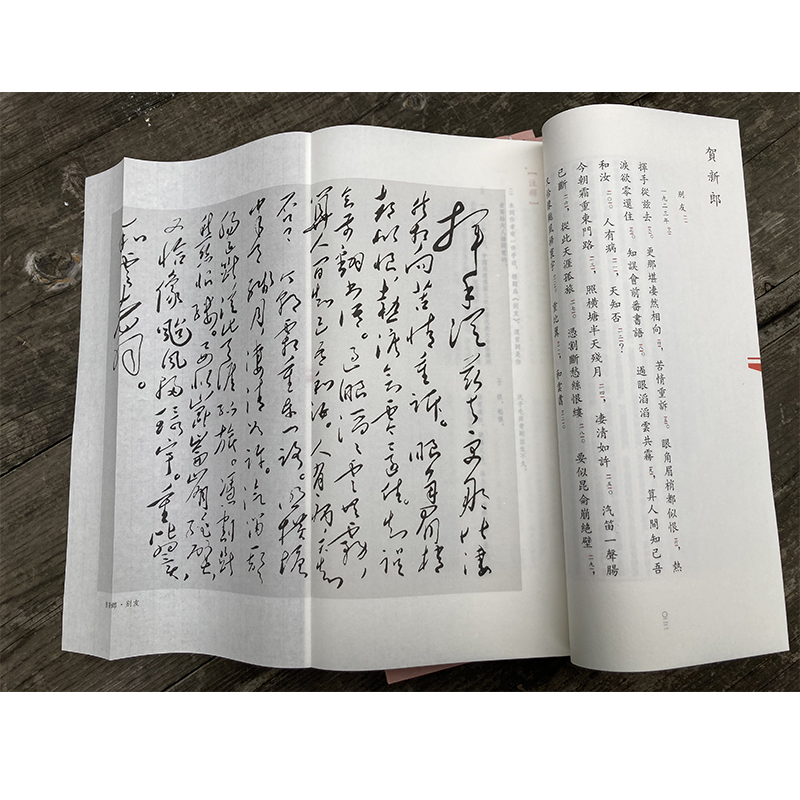 賀新郎
別友
一九二三年
揮手從兹去。更那堪凄然相向,苦情重訴。眼角眉梢都似恨,熱
淚欲零還住。知誤會前番書語。過眼滔滔雲共霧,算人間知己吾
和汝。人有病,天知否?
今朝霜重東門路,照橫塘半天殘月,凄清如許。汽笛一聲腸
已斷,從此天涯孤旅。憑割斷愁絲恨縷。要似昆侖崩絕壁,
又恰像颱風掃寰宇。重比翼,和雲翥。
揮手從兹去更那堪凄
然相向苦情重訴。眼角眉梢
都似恨,熱淚欲零還住。知誤
會前翻書語。過眼滔滔雲共霧,
算人間知己吾和汝。人有病天知
否?今朝霜重東門路。照橫塘
半天殘月凄清如許。汽笛一聲
腸已斷從此天涯孤旅。憑割斷
愁絲恨縷。要似崑崙崩絕壁,
又恰像颱風掃環宇。重比翼,
和雲翥。
郎·別友